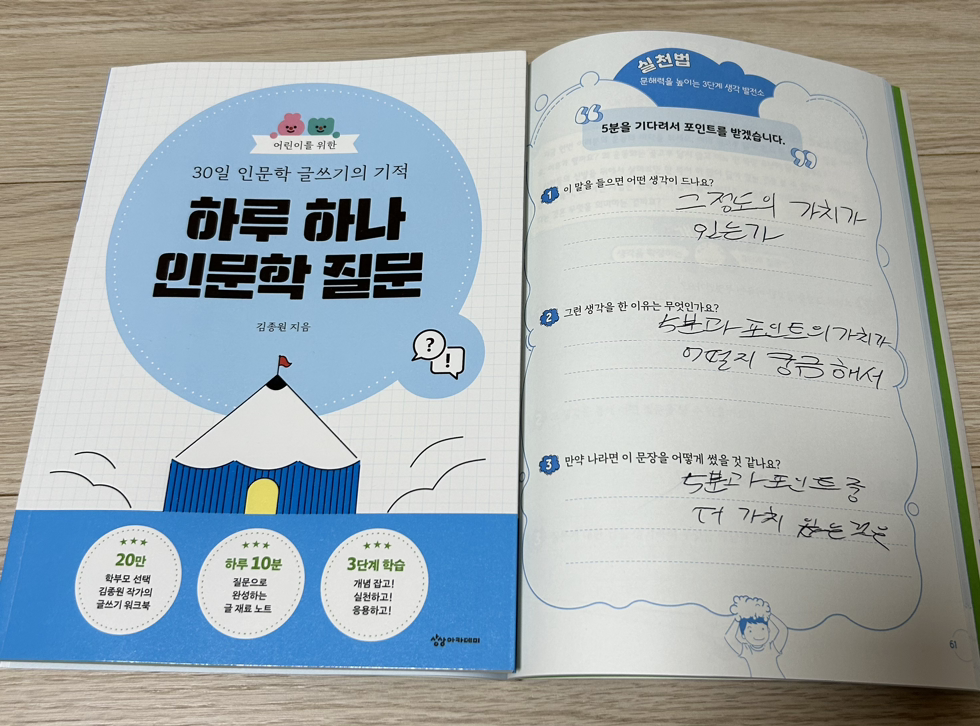 어린이를 위한
30일 인문학 글쓰기의 기적
하루 하나
인문학 질문
김종원 지음
?
!
★★★
20만
학부모 선택
김종원 작가의
글쓰기 워크북
★★★
하루 10분
질문으로
완성하는
글 재료 노트
★★★
3단계 학습
개념 잡고!
실천하고!
응용하고!
상상아카데미
실천법
문해력을 높이는 3단계 생각 발전소
5분을 기다려서 포인트를 받겠습니다.
1 이 말을 들으면 어떤 생각이 드나요?
그 정도의 가치가
있는가
2 그런 생각을 한 이유는 무엇인가요?
5분과 포인트의 가치가
어떨지 궁금해서
3 만약 나라면 이 문장을 어떻게 썼을 것 같나요?
5분과 포인트 중
더 가치 있는 것은
61